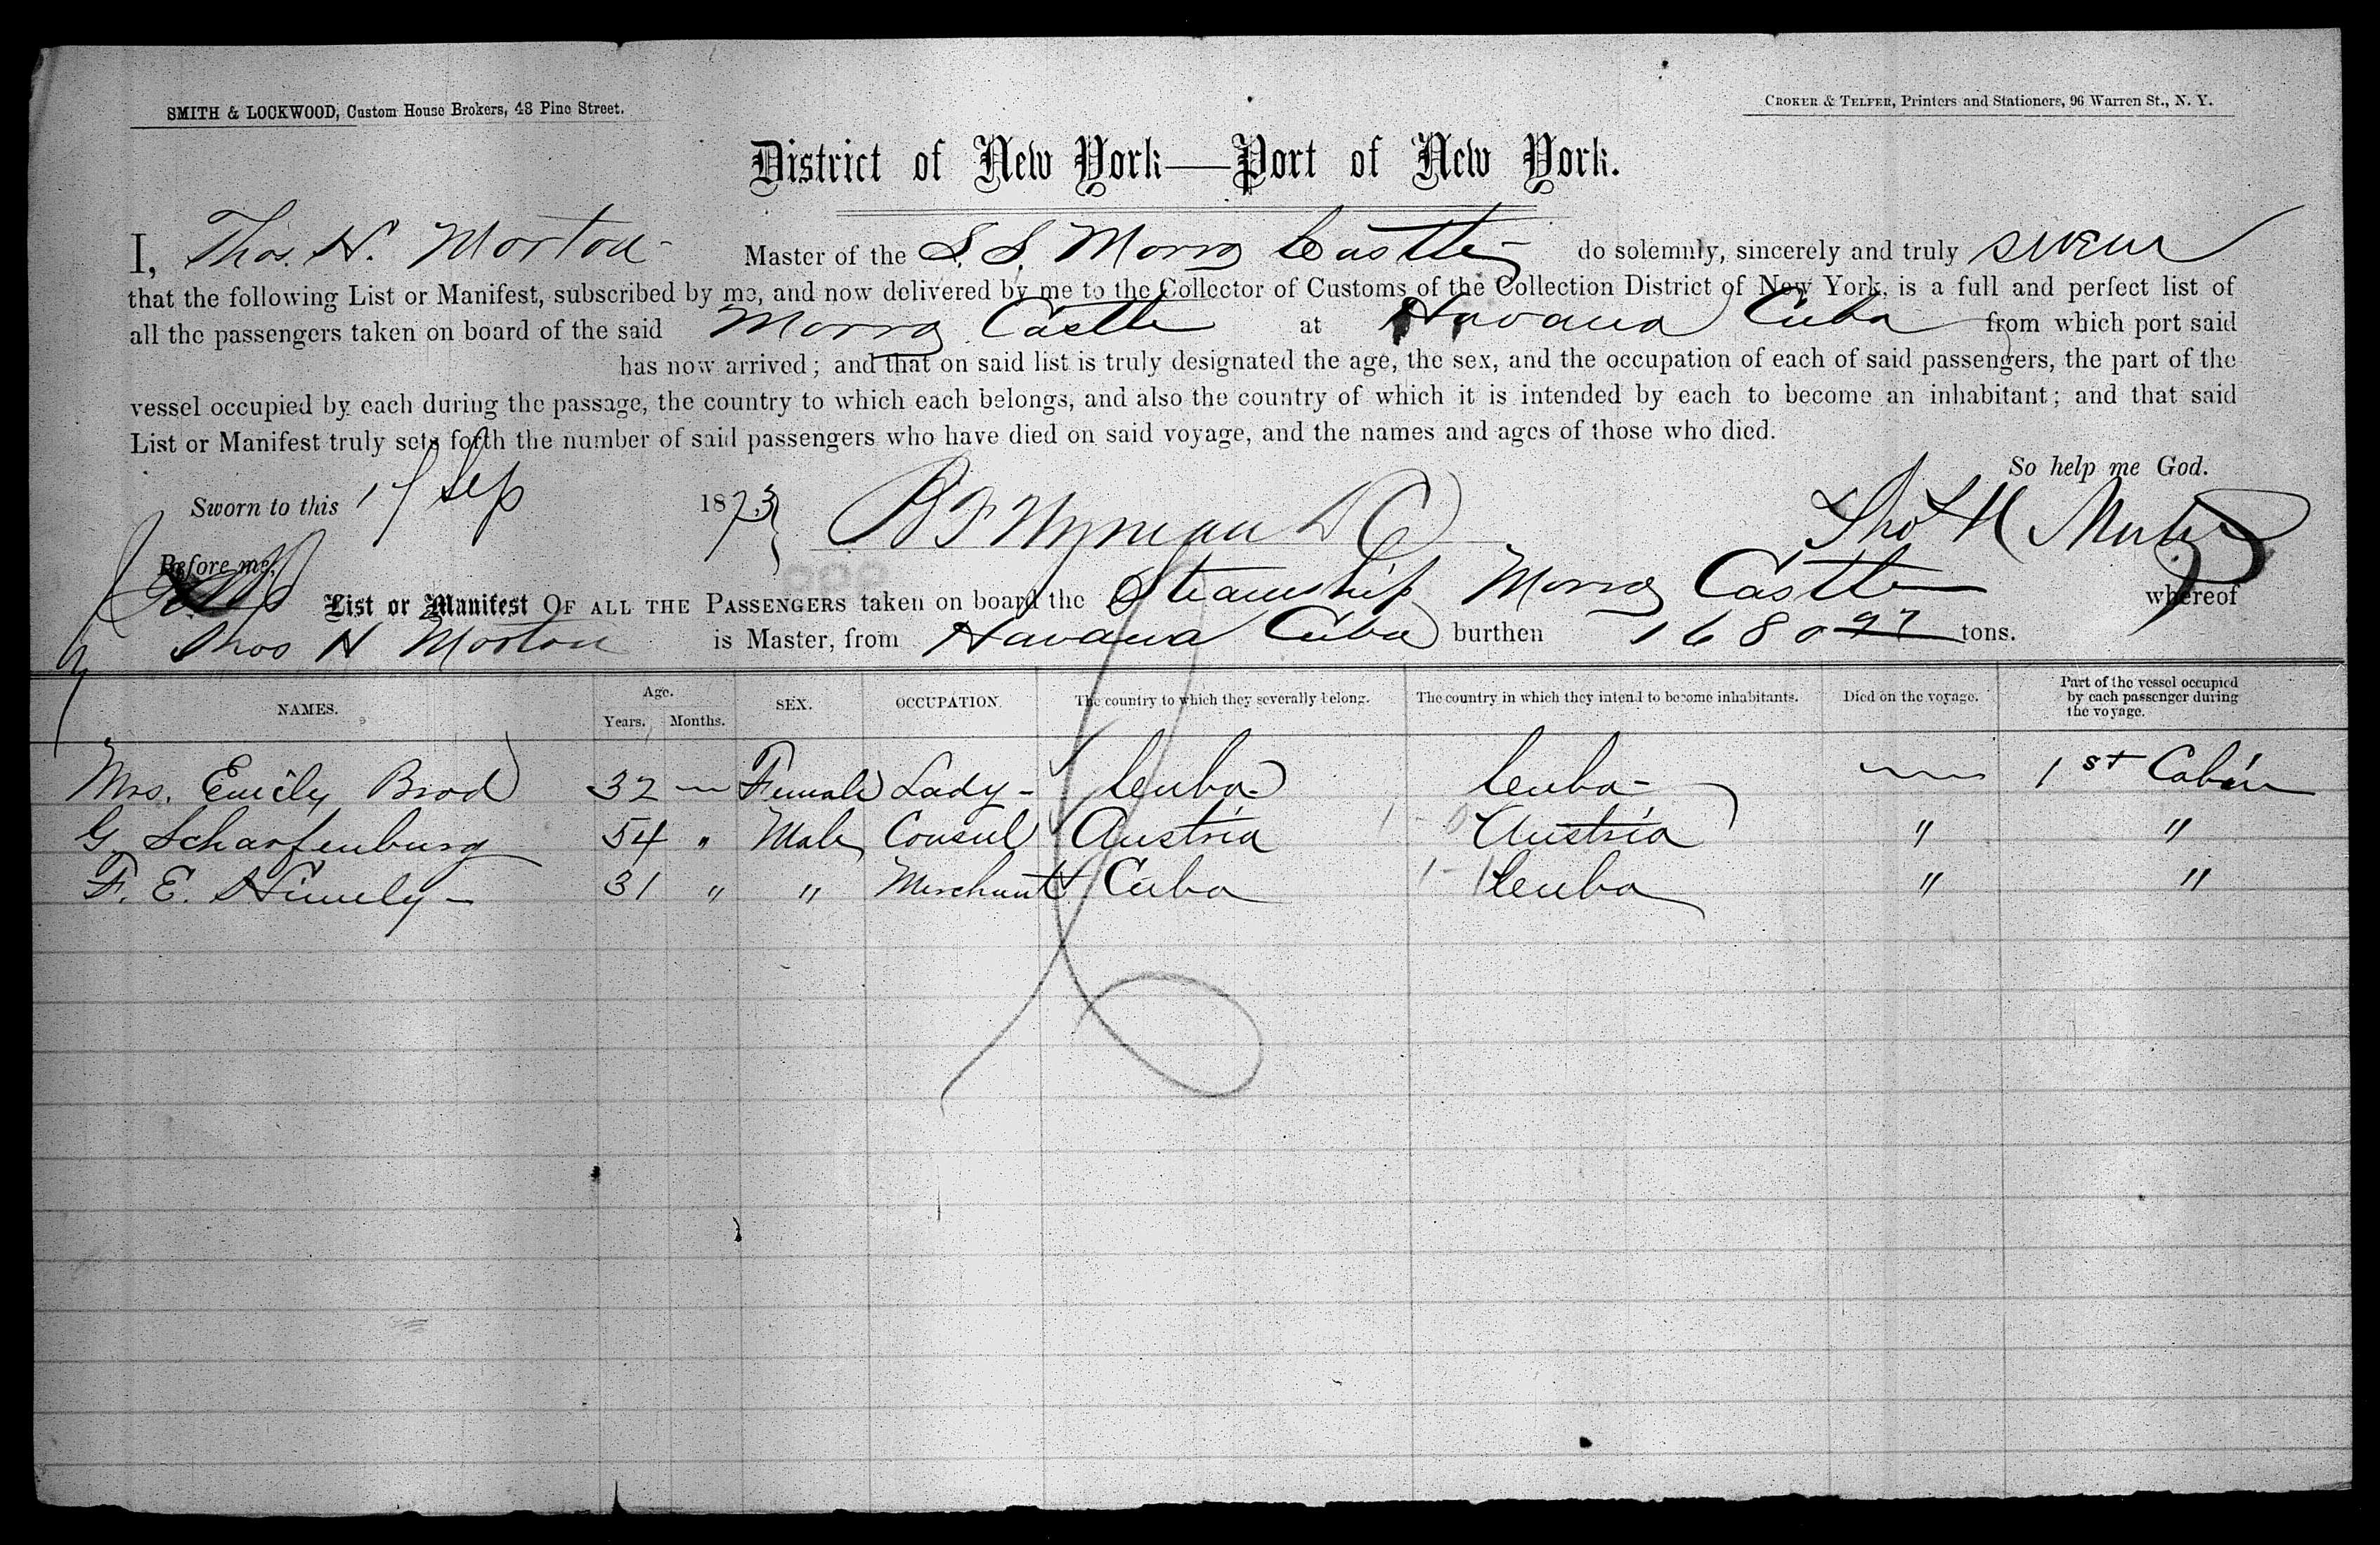 SMITH & LOCKWOOD, Custom House Brokers, 43 Pine Street.
CROKER & TELFER, Printers and Stationers, 96 Warren St., N. Y.
District of New York—Port of New York.
I, Thos. H. Morton Master of the S. S. Morro Castle do solemnly, sincerely and truly swear
that the following List or Manifest, subscribed by me, and now delivered by me to the Collector of Customs of the Collection District of New York, is a full and perfect list of
all the passengers taken on board of the said Morro Castle at Havana Cuba from which port said
has now arrived; and that on said list is truly designated the age, the sex, and the occupation of each of said passengers, the part of the
vessel occupied by each during the passage, the country to which each belongs, and also the country of which it is intended by each to become an inhabitant; and that said
List or Manifest truly sets forth the number of said passengers who have died on said voyage, and the names and ages of those who died.
So help me God.
Sworn to this 17 Sep 1873 B F Wyman D C Thos H Morton
Before me,
List or Manifest OF ALL THE PASSENGERS taken on board the Steamship Morro Castle whereof
Thos H Morton is Master, from Havana Cuba burthen 1680 97 tons.
NAMES. Age. Years. Months. SEX. OCCUPATION. The country to which they severally belong. The country in which they intend to become inhabitants. Died on the voyage. Part of the vessel occupied by each passenger during the voyage.
Mrs. Emily Brod 32 — Female Lady - Cuba - Cuba - 1st Cabin
G. Scharfenburg 54 " Male Consul Austria Austria " "
F. E. Himely - 31 " " Merchant Cuba Cuba " "